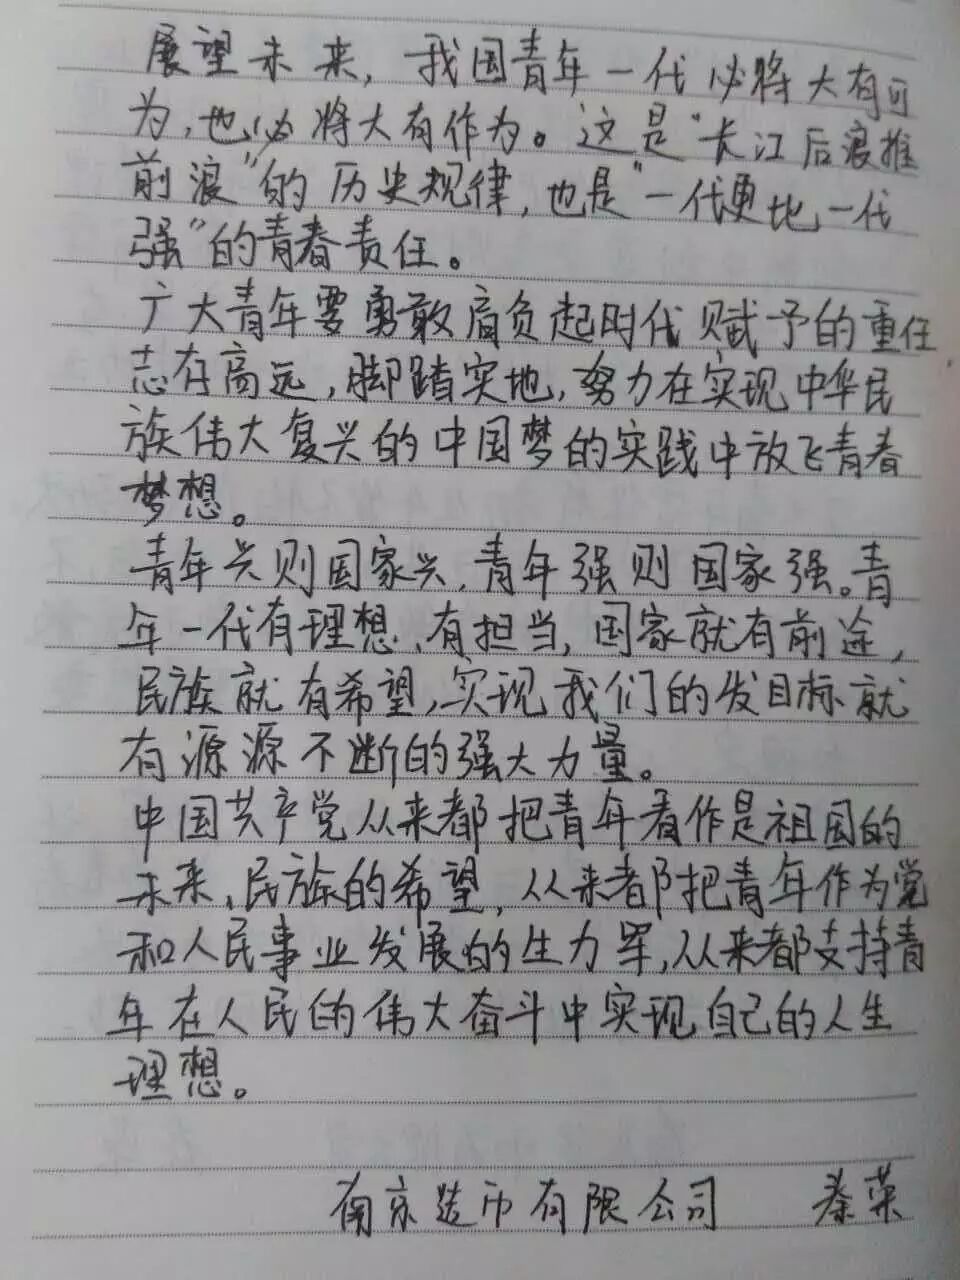 展望未来,我国青年一代必将大有可
为,也必将大有作为。这是"长江后浪推
前浪"的历史规律,也是"一代更比一代
强"的青春责任。
广大青年要勇敢肩负起时代赋予的重任
志存高远,脚踏实地,努力在实现中华民
族伟大复兴的中国梦的实践中放飞青春
梦想。
青年兴则国家兴,青年强则国家强。青
年一代有理想、有担当,国家就有前途,
民族就有希望,实现我们的发目标就
有源源不断的强大力量。
中国共产党从来都把青年看作是祖国的
未来、民族的希望,从来都把青年作为党
和人民事业发展的生力军,从来都支持青
年在人民的伟大奋斗中实现自己的人生
理想。
南京造币有限公司 秦荣